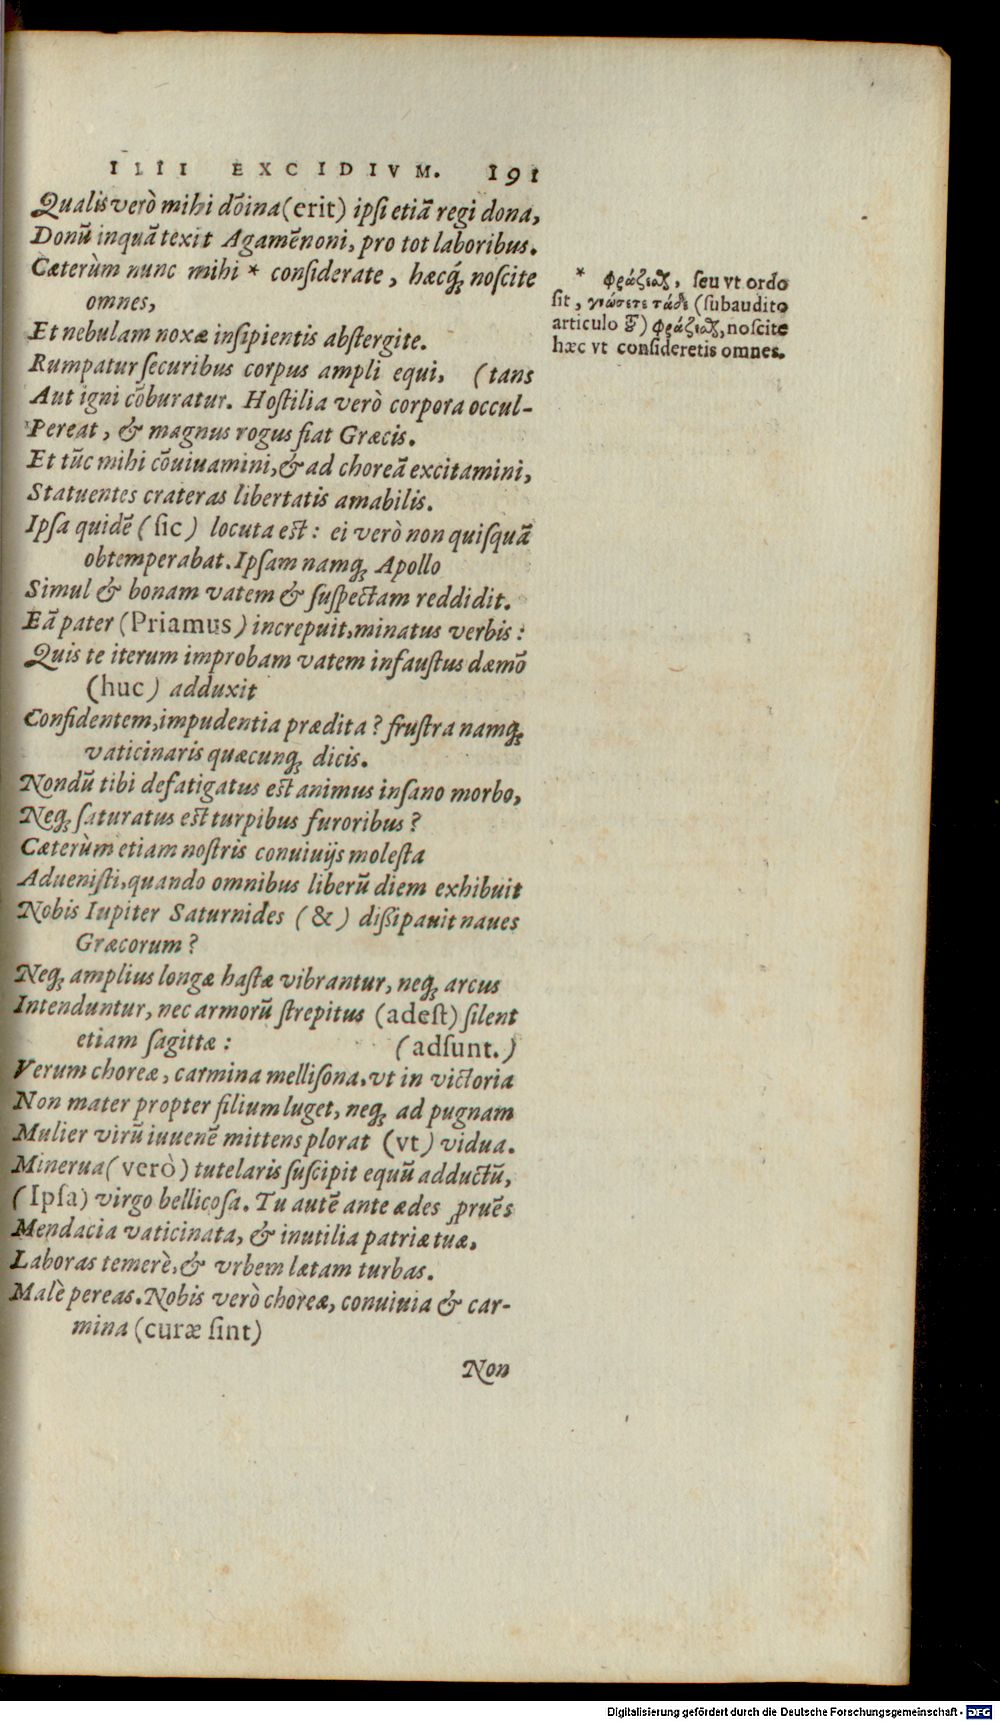 ILII EXCIDIVM. 191
Qualis verò mihi dõina (erit) ipsi etiã regi dona,
Donũ inquã texit Agamẽnoni, pro tot laboribus.
Cæterùm nunc mihi * considerate, hæcq́; noscite
omnes,
Et nebulam noxæ insipientis abstergite.
Rumpatur securibus corpus ampli equi, (tans
Aut igni cõburatur. Hostilia verò corpora occul-
Pereat, & magnus rogus fiat Græcis.
Et tũc mihi cõuiuamini, & ad choreã excitamini,
Statuentes crateras libertatis amabilis.
Ipsa quidẽ (sic) locuta est: ei verò non quisquã
obtemperabat. Ipsam namq; Apollo
Simul & bonam vatem & suspectam reddidit.
Eã pater (Priamus) increpuit, minatus verbis:
Quis te iterum improbam vatem infaustus dæmõ
(huc) adduxit
Confidentem, impudentia prædita? frustra namq;
vaticinaris quæcunq; dicis.
Nondũ tibi defatigatus est animus insano morbo,
Neq; saturatus est turpibus furoribus?
Cæterùm etiam nostris conuiuijs molesta
Aduenisti, quando omnibus liberũ diem exhibuit
Nobis Iupiter Saturnides (&) dissipauit naues
Græcorum?
Neq; amplius longæ hastæ vibrantur, neq; arcus
Intenduntur, nec armorũ strepitus (adest) silent
etiam sagittæ: (adsunt.)
Verum choreæ, carmina mellisona, vt in victoria
Non mater propter filium luget, neq; ad pugnam
Mulier virũ iuuenẽ mittens plorat (vt) vidua.
Minerua (verò) tutelaris suscipit equũ adductũ,
(Ipsa) virgo bellicosa. Tu autẽ ante ædes ꝓruẽs
Mendacia vaticinata, & inutilia patriæ tuæ,
Laboras temerè, & vrbem lætam turbas.
Malè pereas. Nobis verò choreæ, conuiuia & car-
mina (curæ sint)
Non
* φράζεσθαι, seu vt ordo
sit, γνώσετε τάδε (subaudito
articulo) φράζεσθαι, noscite
hæc vt consideretis omnes.
Digitalisierung gefördert durch die Deutsche Forschungsgemeinschaft - DFG